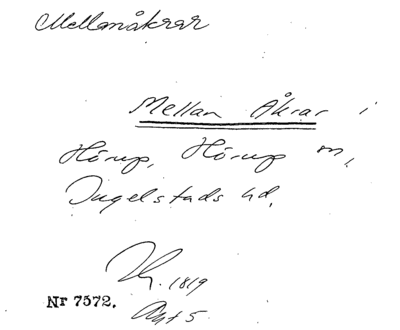 Mellanåkrar
Mellan Åkrar i
Hörup, Hörup sn,
Ingelstads hd.
1819
Nr 7572.
Akt 5